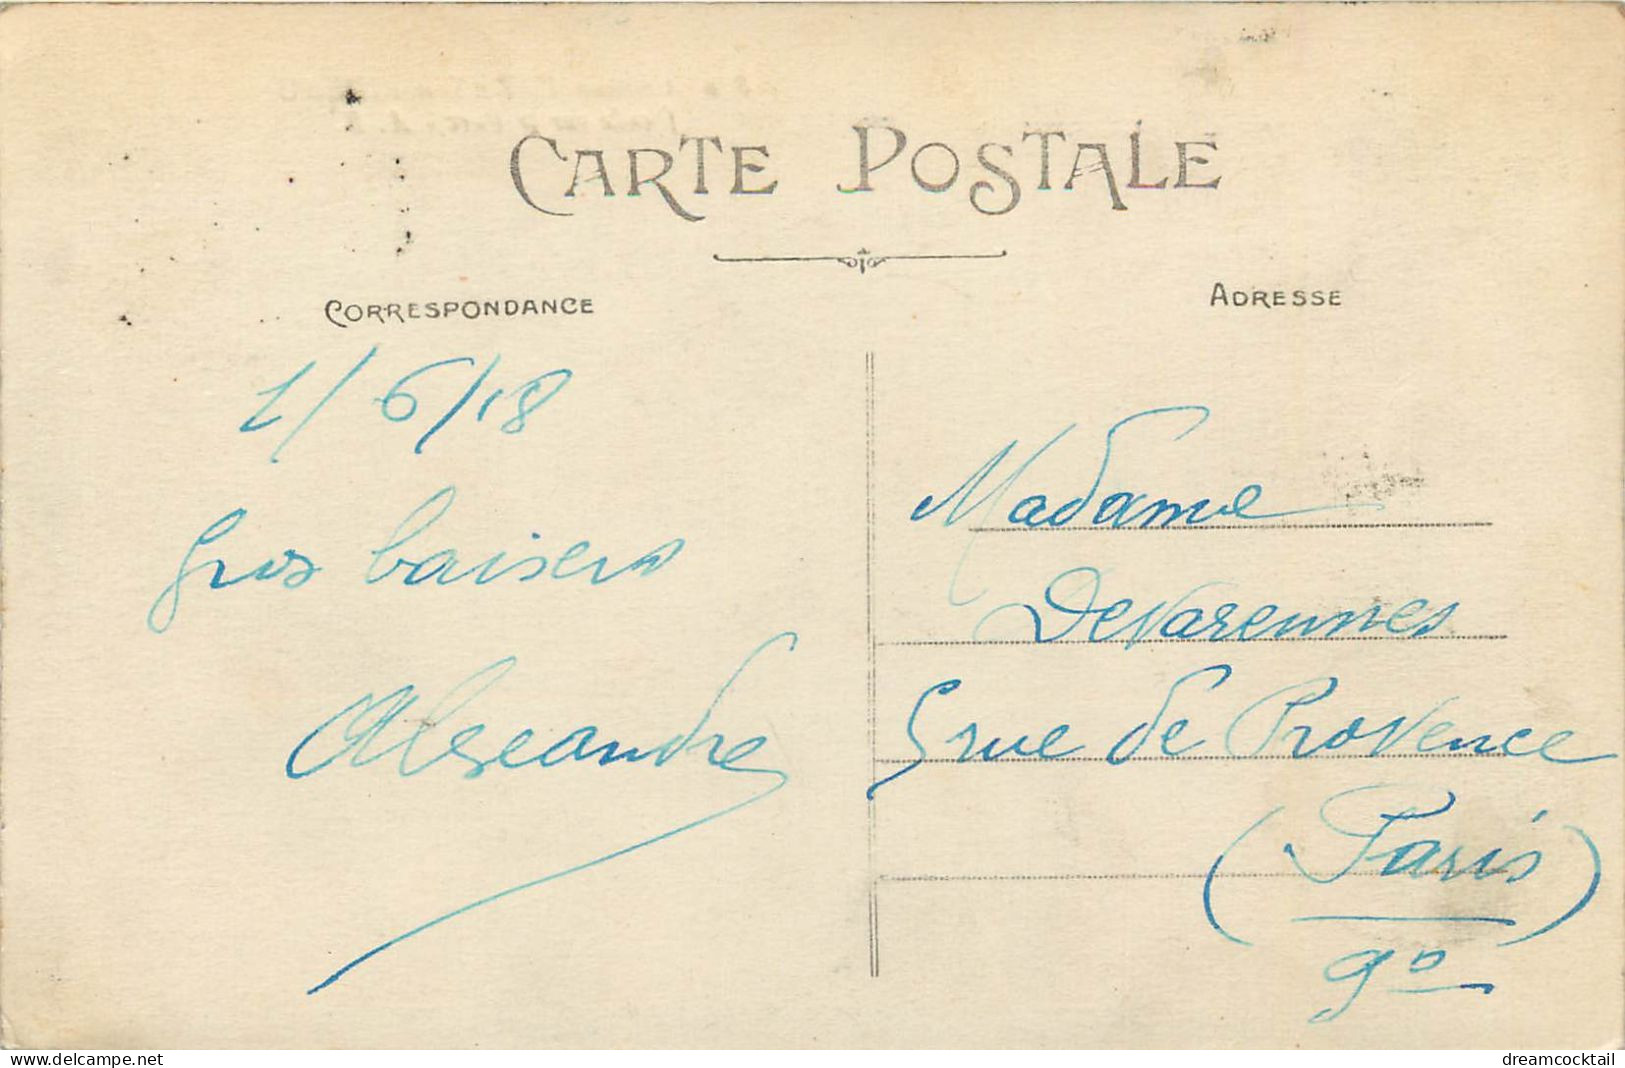 CARTE POSTALE
CORRESPONDANCE
ADRESSE
1/6/18
Gros baisers
Alexandre
Madame
Devarennes
5 rue de Provence
(Paris)
9º
www.delcampe.net
dreamcocktail